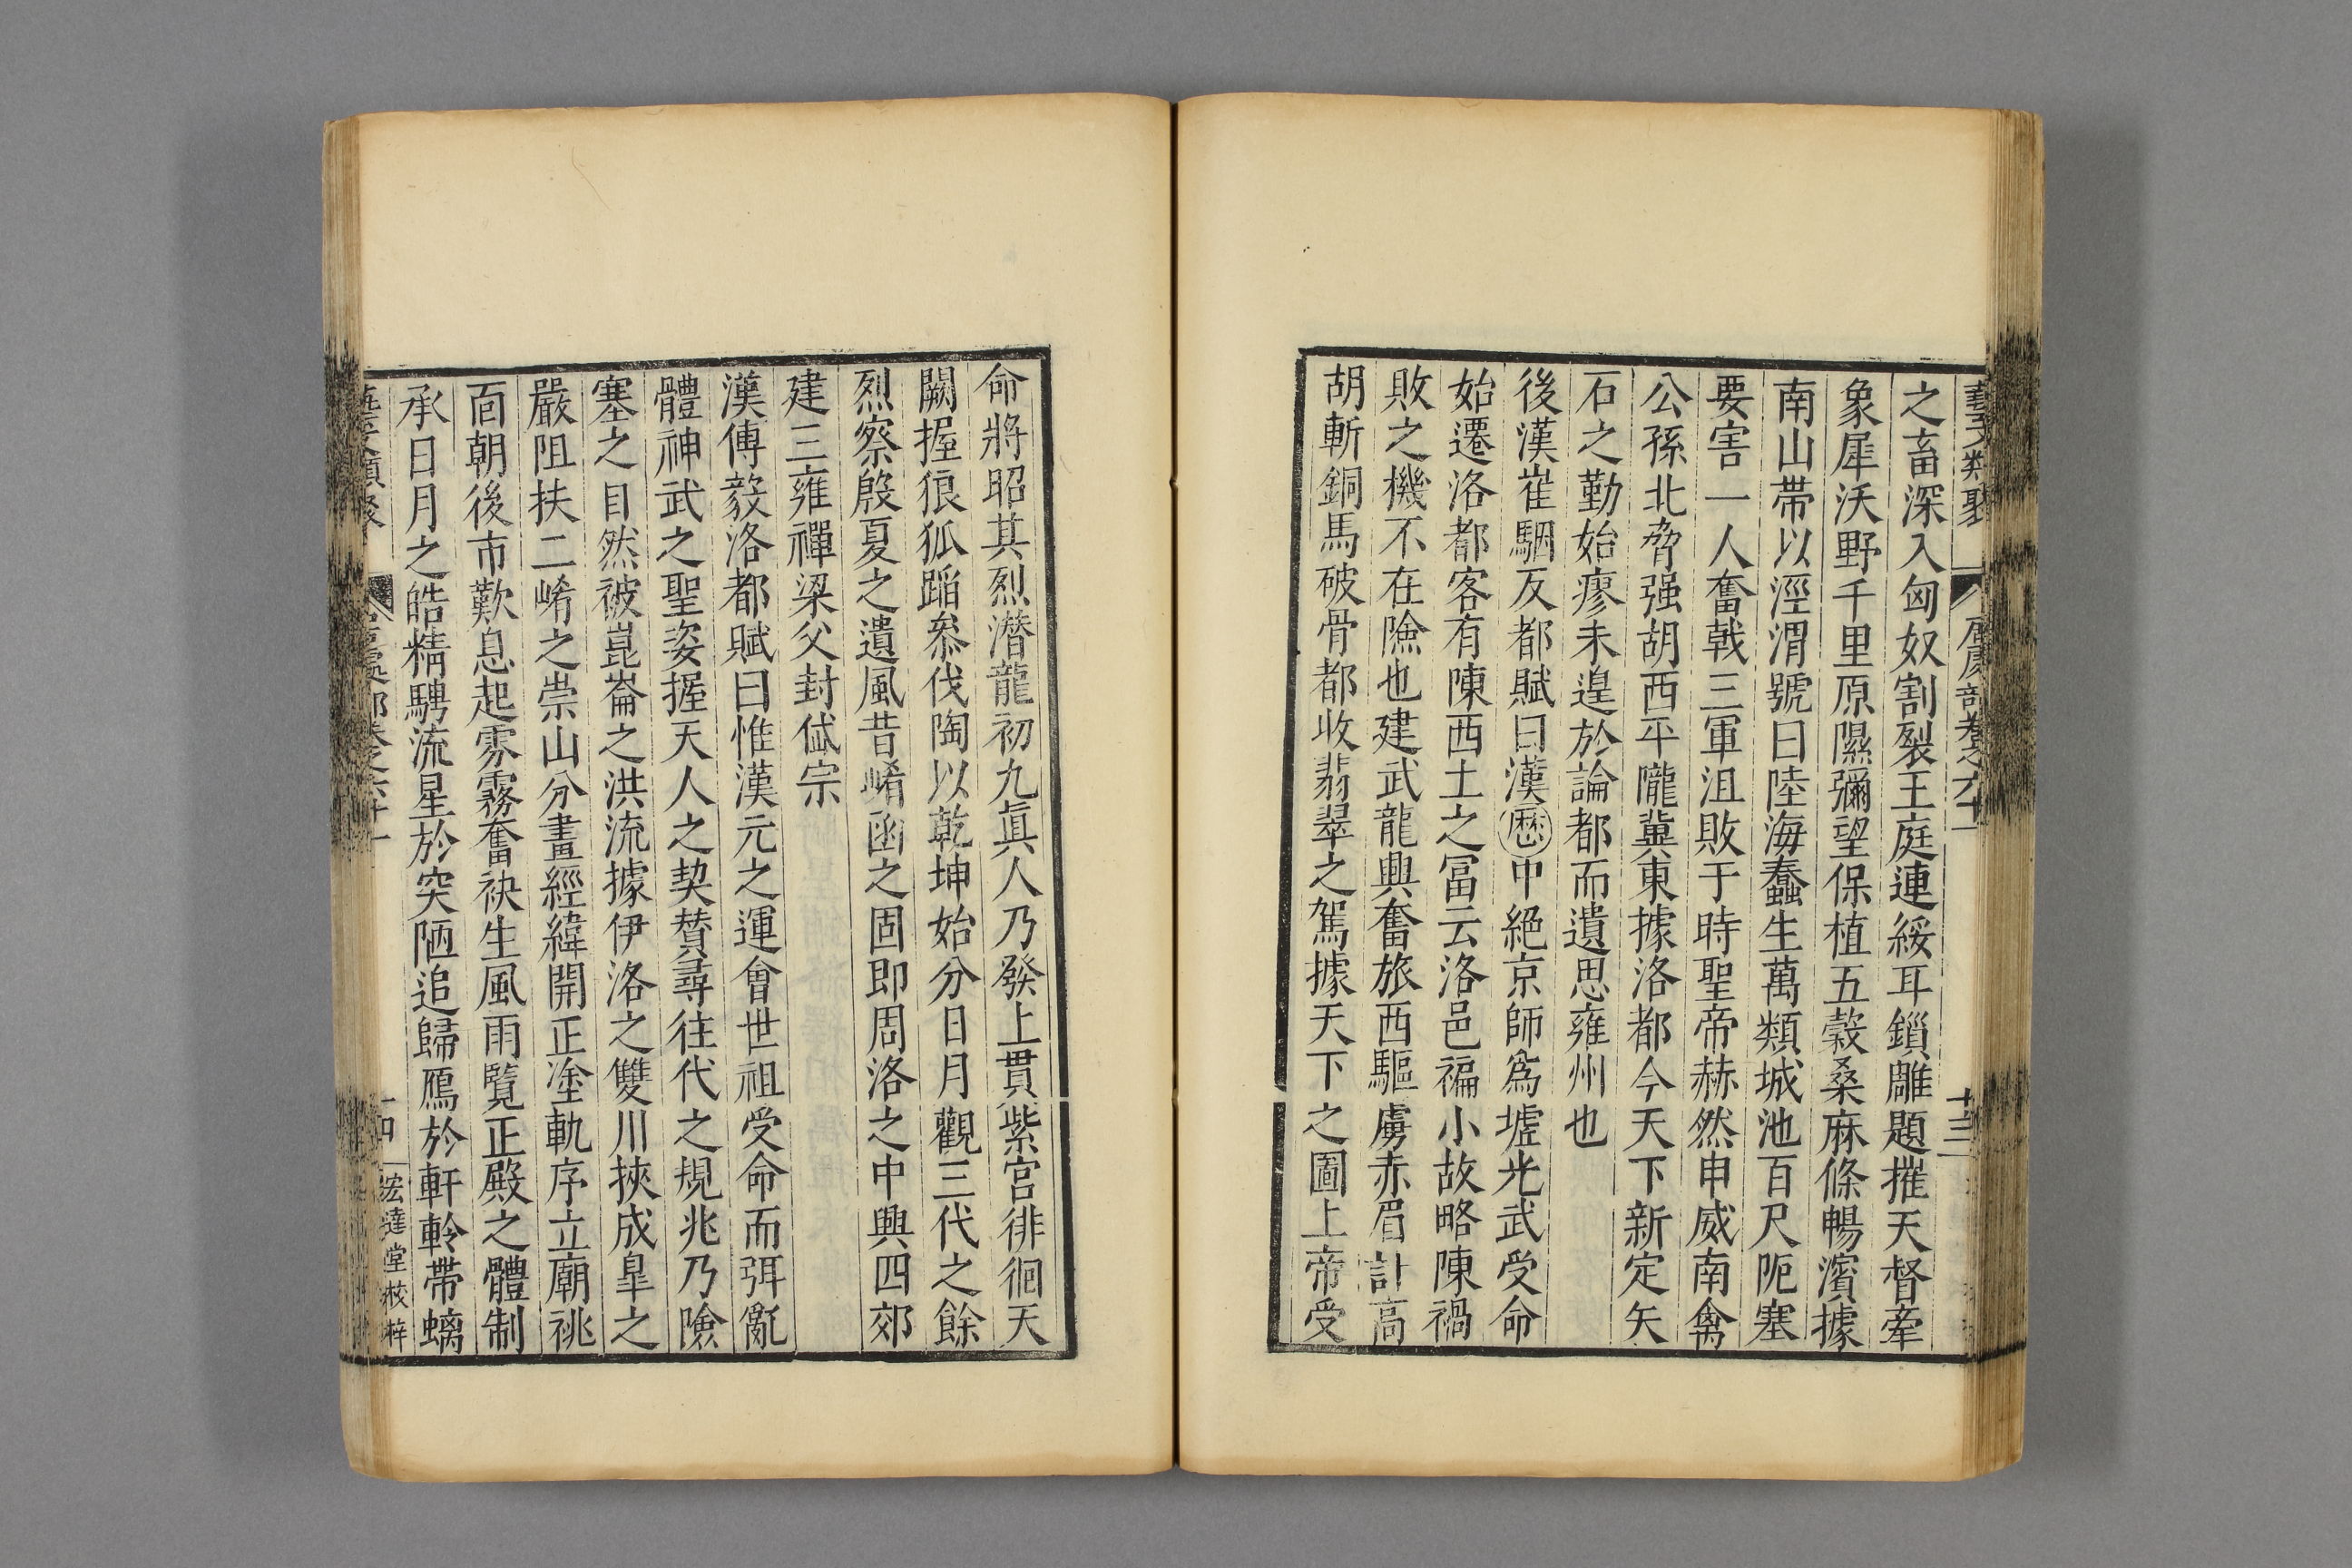 藝文類聚 居處部卷之六十一 十三
之畜深入匈奴割裂王庭連綏耳鎖雕題摧天督牽
象犀沃野千里原隰彌望保植五穀桑麻條暢濱據
南山帶以涇渭號曰陸海蠢生萬類城池百尺阨塞
要害一人奮戟三軍沮敗于時聖帝赫然申威南禽
公孫北脅强胡西平隴冀東據洛都今天下新定矢
石之勤始瘳未遑於論都而遺思雍州也
後漢崔駰反都賦曰漢歷中絕京師爲墟光武受命
始遷洛都客有陳西土之冨云洛邑褊小故略陳禍
敗之機不在險也建武龍興奮旅西驅虜赤眉計高
胡斬銅馬破骨都收翡翠之駕據天下之圖上帝受
命將昭其烈潜龍初九眞人乃發上貫紫宮徘徊天
闕握狼狐蹈叅伐陶以乾坤始分日月觀三代之餘
烈察殷夏之遺風昔崤函之固即周洛之中興四郊
建三雍禪梁父封岱宗
漢傅毅洛都賦曰惟漢元之運會世祖受命而弭亂
體神武之聖姿握天人之契贊尋往代之規兆乃險
塞之自然被崑崙之洪流據伊洛之雙川挾成皐之
嚴阻扶二崤之崇山分畫經緯開正塗軌序立廟祧
面朝後市歎息起雰霧奮袂生風雨覽正殿之體制
承日月之皓精騁流星於突陋追歸鴈於軒軨帶螭
藝文類聚 居處部卷之六十一 十四 宏達堂校梓